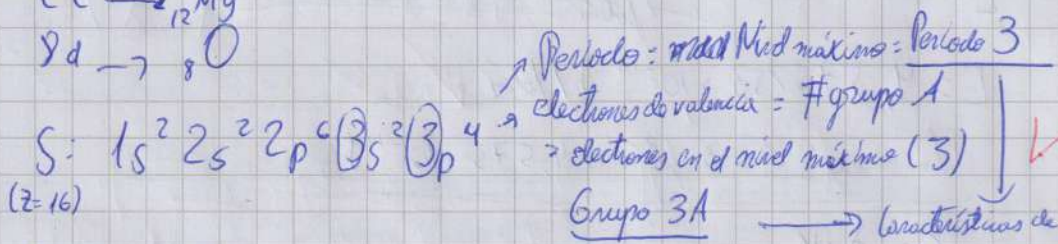 12Mg
8d → 8O
S: 1s² 2s² 2p⁶ 3s² 3p⁴
(Z=16)
Período: Nivel máximo = Período 3
electrones de valencia = # grupo A
= electrones en el nivel máximo (3)
Grupo 3A → Características de